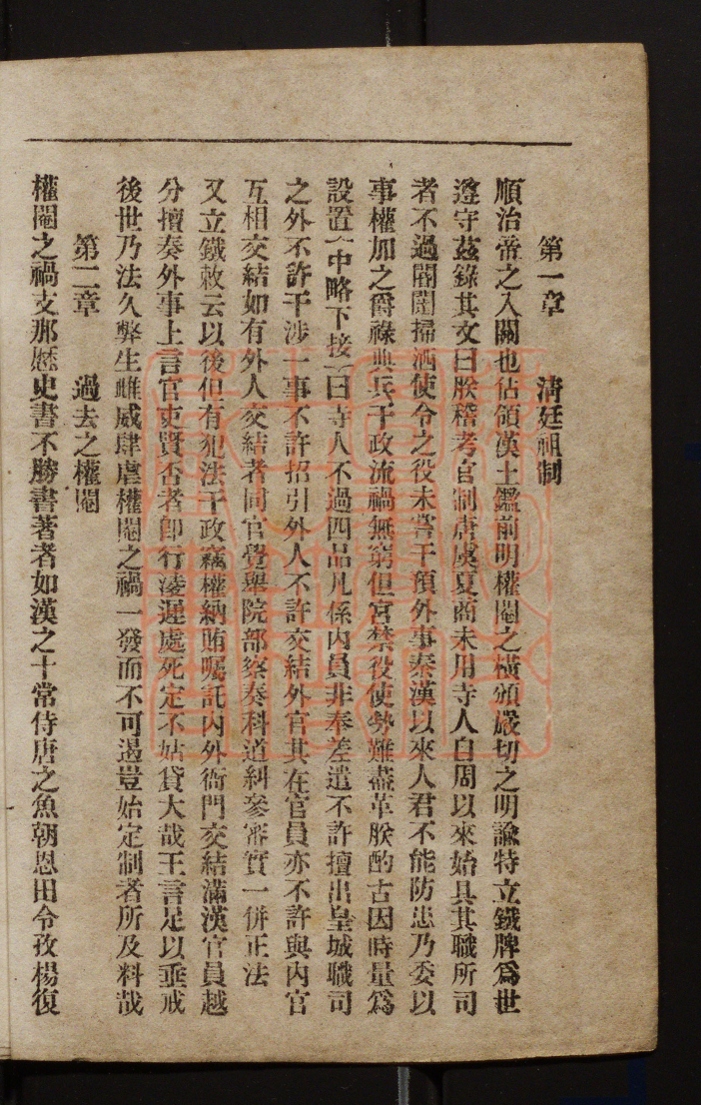 第一章　清廷祖制
順治帝之入關也佔領漢土鑑前明權閹之橫頒嚴切之明諭特立鐵牌爲世
遵守茲錄其文曰朕稽考官制唐虞夏商未用寺人自周以來始具其職所司
者不過閽闥掃洒使令之役未嘗干預外事秦漢以來人君不能防患乃委以
事權加之爵祿典兵干政流禍無窮但宮禁役使勢難盡革朕酌古因時量爲
設置（中略下接）曰寺人不過四品凡係內員非奉差遣不許擅出皇城職司
之外不許干涉一事不許招引外人不許交結外官其在官員亦不許與內官
互相交結如有外人交結者同官覺舉院部察奏科道糾參審實一併正法
又立鐵敕云以後但有犯法干政竊權納賄囑託內外衙門交結滿漢官員越
分擅奏外事上言官吏賢否者卽行凌遲處死定不姑貸大哉王言足以垂戒
後世乃法久弊生雌威肆虐權閹之禍一發而不可遏豈始定制者所及料哉
第二章　過去之權閹
權閹之禍支那歷史書不勝書著者如漢之十常侍唐之魚朝恩田令孜楊復